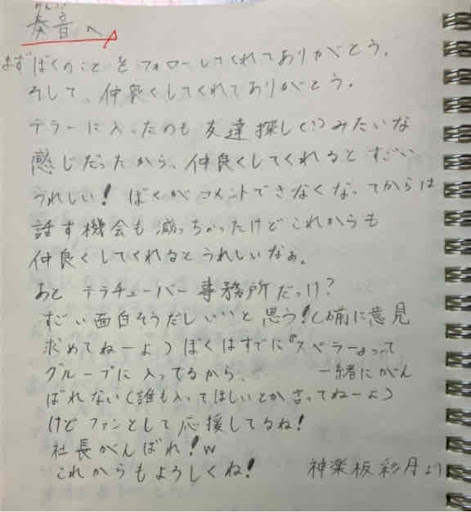 奏音へ
まずぼくのことをフォローしてくれてありがとう。
そして、仲良くしてくれてありがとう。
テラーに入ったのも友達探し(?)みたいな
感じだったから、仲良くしてくれるとすごい
うれしい!ぼくがコメントできなくなってからは
話す機会も減っちゃったけどこれからも
仲良くしてくれるとうれしいなぁ。
あとテラチューバー事務所だっけ?
すごい面白そうだしいいと思う!(お前に意見
求めてねーよ)ぼくはすでに『スペラー』って
グループに入ってるから、一緒にがん
ばれない(誰も入ってほしいとか言ってねーよ)
けどファンとして応援してるね!
社長がんばれ!w
これからもよろしくね! 神楽板彩月より